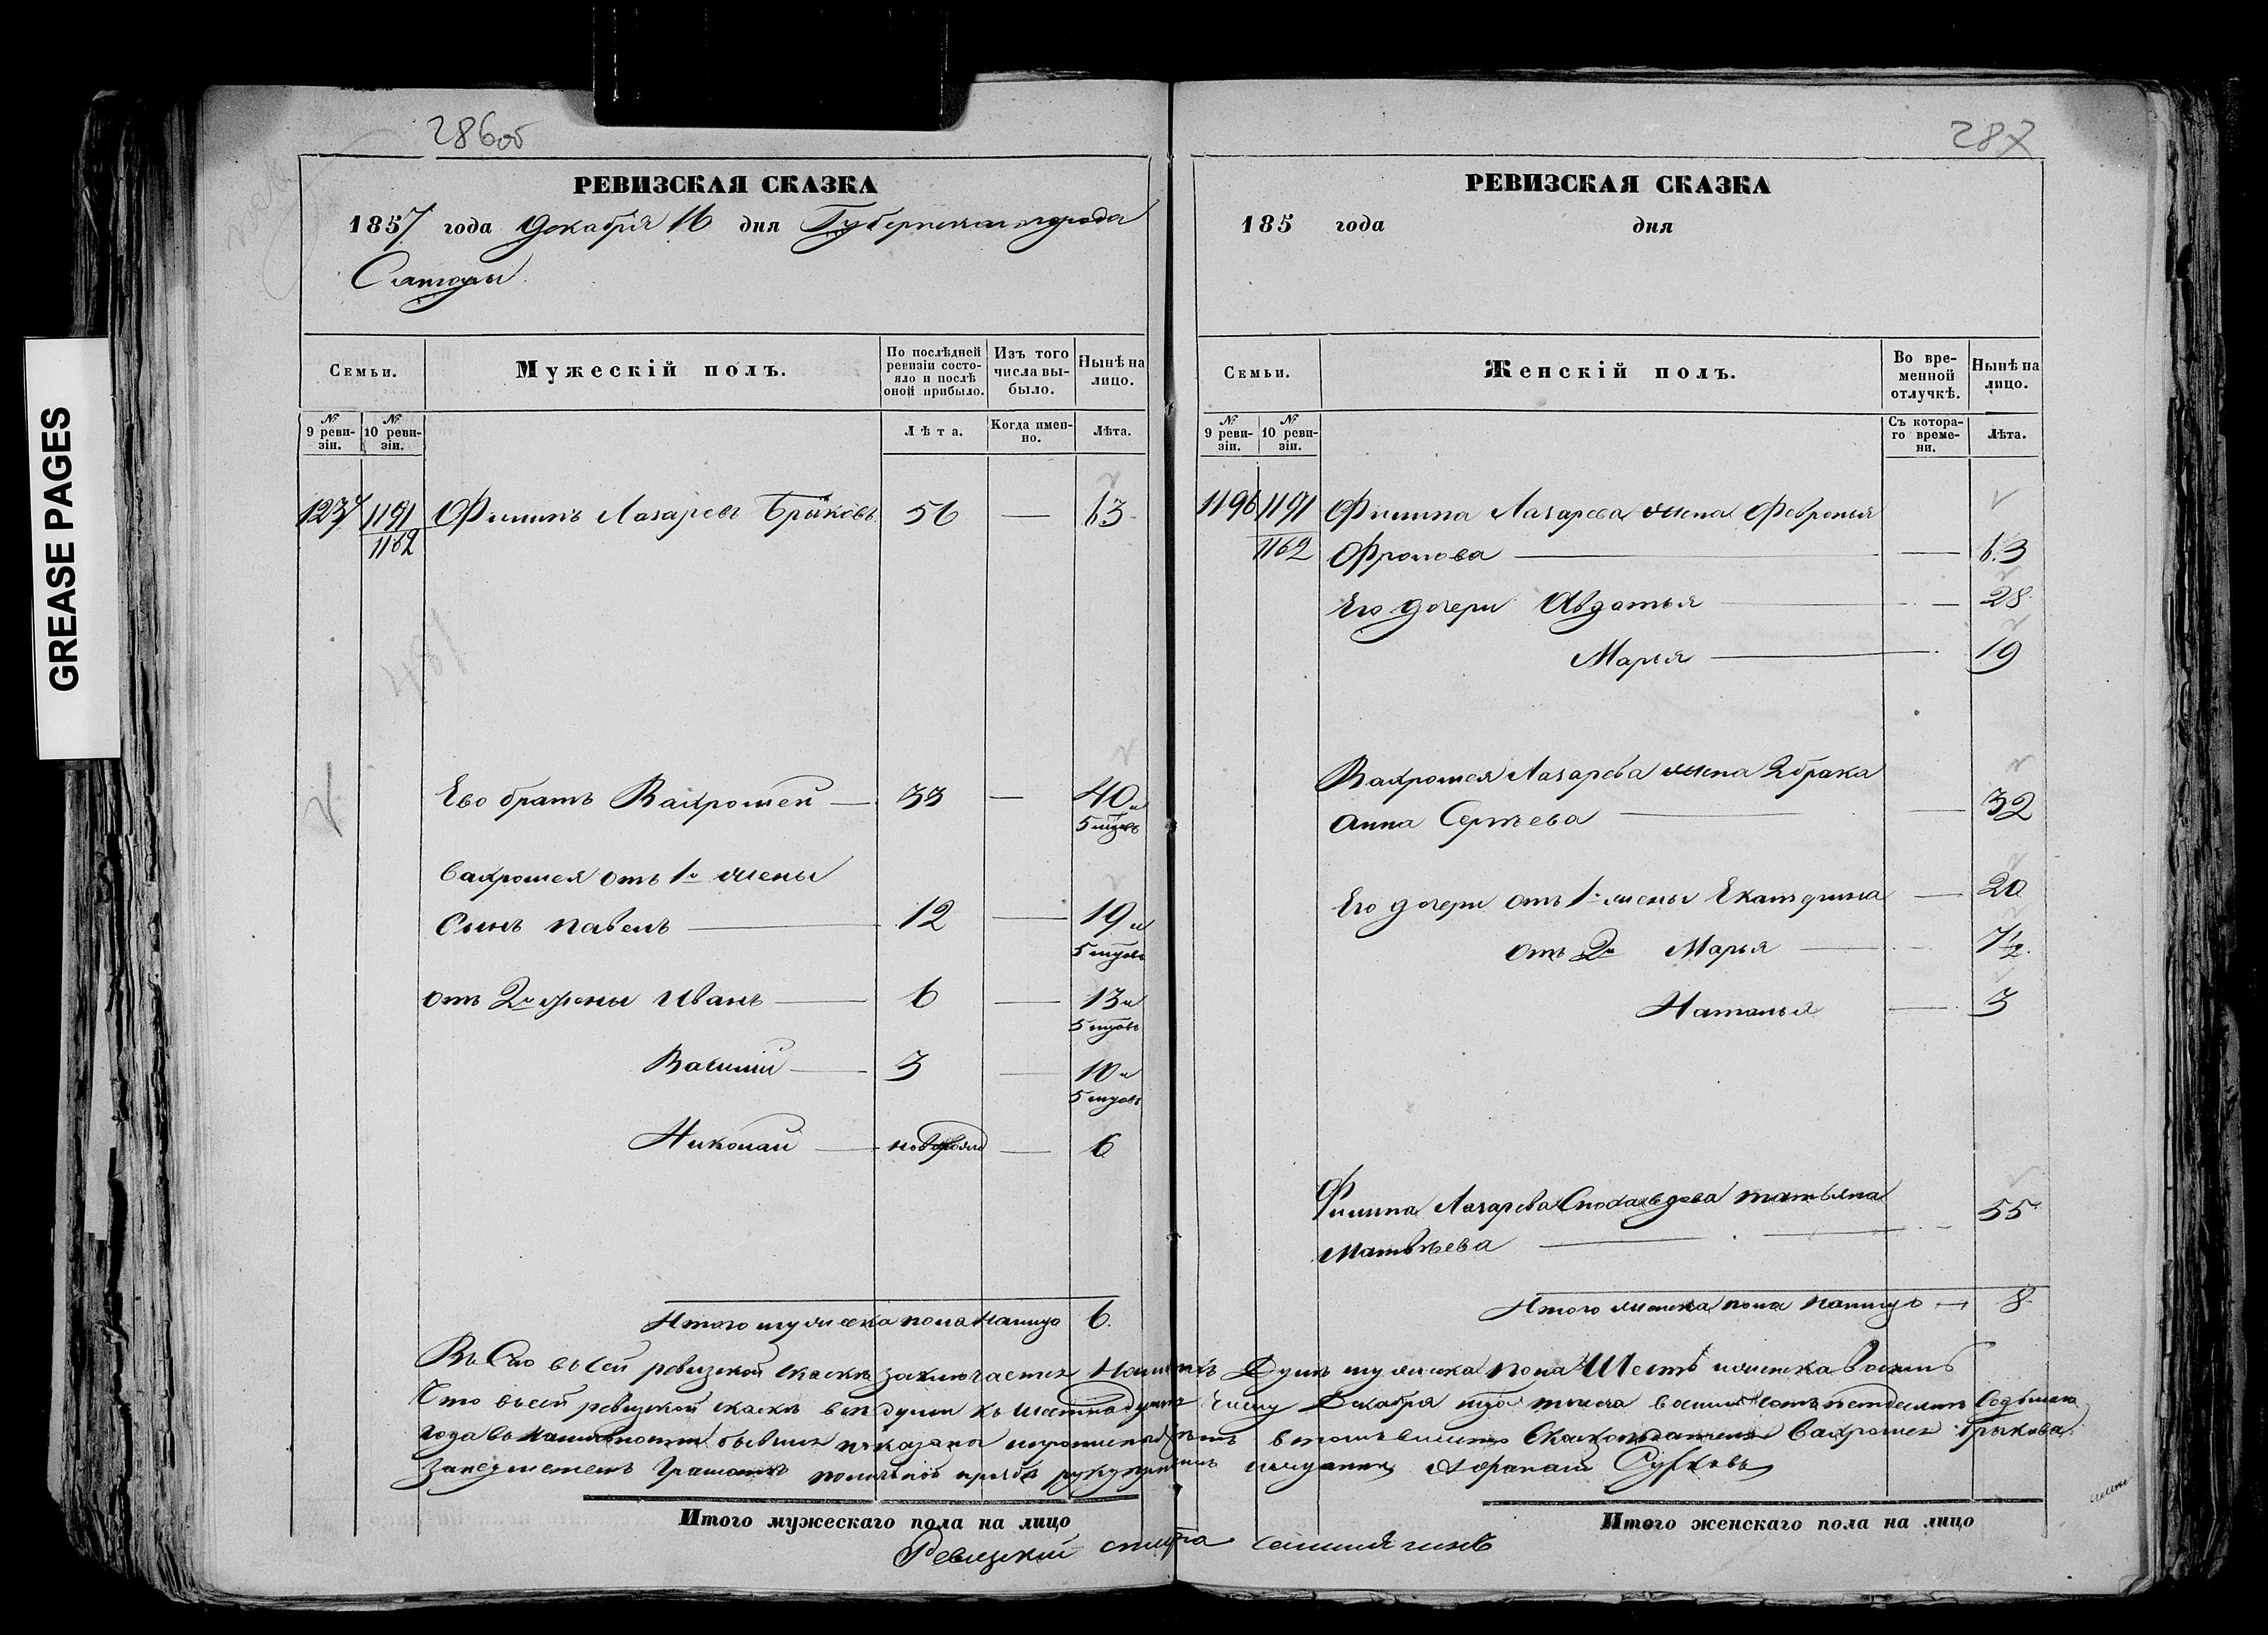 GREASE PAGES
286об
РЕВИЗСКАЯ СКАЗКА
1857 года Декабря 16 дня Губернскаго города
Самары
Семьи.
Мужескій полъ.
По послѣдней ревизіи состояло и послѣ оной прибыло.
Изъ того числа выбыло.
Нынѣ на лицо.
№ 9 ревизіи.
№ 10 ревизіи.
Лѣта.
Когда именно.
Лѣта.
1237 1191 Филипъ Лазаревъ Брыковъ 56 — 63
1162
Ево братъ Вахромей — 33 — 40 и
5 мцов
Вахромея отъ 1й жены
Сынъ Павелъ — 12 — 19 и
5 мцов
отъ 2й жены Иванъ — 6 — 13 и
5 мцовъ
Василий — 3 — 10 и
5 мцовъ
Николай — — 6
Итого мужеска пола налицо 6.
287
РЕВИЗСКАЯ СКАЗКА
185 года дня
Семьи.
Женскій полъ.
Во временной отлучкѣ.
Нынѣ на лицо.
№ 9 ревизіи.
№ 10 ревизіи.
Съ котораго времени.
Лѣта.
1196 1191 Филипа Лазарева жена Февронья
1162 Фролова — 63
Его дочери Авдотья — 28
Марья — 19
Вахромея Лазарева жена 2 брака
Анна Сергѣева — 32
Его дочери отъ 1й жены Екатерина — 20
отъ 2й Марья — 7½
Наталья — 3
Филипа Лазарева Татьяна
Матвѣева — 55
Итого женска пола налицо — 8
въ сей ревизской скаскѣ заключается Налицо Душъ мужеска пола Шесть и женска Восемь
Что въ сей ревизской скаскѣ всѣ души къ Шестнадцатому числу Декабря тысяча восемь сотъ петдесятъ Седьмаго
года въ наличности бывшия показаны в томъ вместо Вахромея Брыкова
прозбѣ руку приложилъ мещанинъ
Итого мужескаго пола на лицо
Итого женскаго пола на лицо
Ревизский